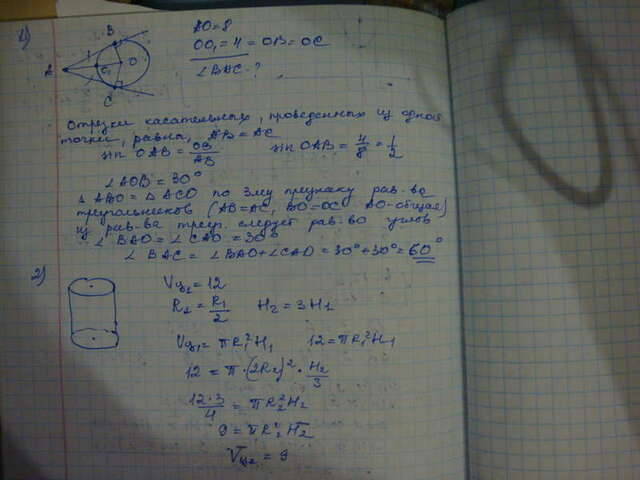 1)
B
A
O
O₁
C
AO=8
OO₁=4=OB=OC
∠BAC-?
Отрезки касательных, проведенных из одной
точки, равны, AB=AC
sin OAB = OB/AB sin OAB = 4/8 = 1/2
∠AOB=30°
△ ABO=△ACO по 3му признаку рав-ва
треугольников (AB=AC, BO=OC AO-общая)
из рав-ва треуг. следует рав-во углов
∠BAO=∠CAO=30°
∠BAC=∠BAO+∠CAO=30°+30°=60°
2)
Vц₁=12
R₂=R₁/2 H₂=3H₁
Vц₁=πR₁²H₁ 12=πR₁²H₁
12=π·(2R₂)²·H₂/3
12·3/4=πR₂²H₂
9=πR₂²H₂
Vц₂=9